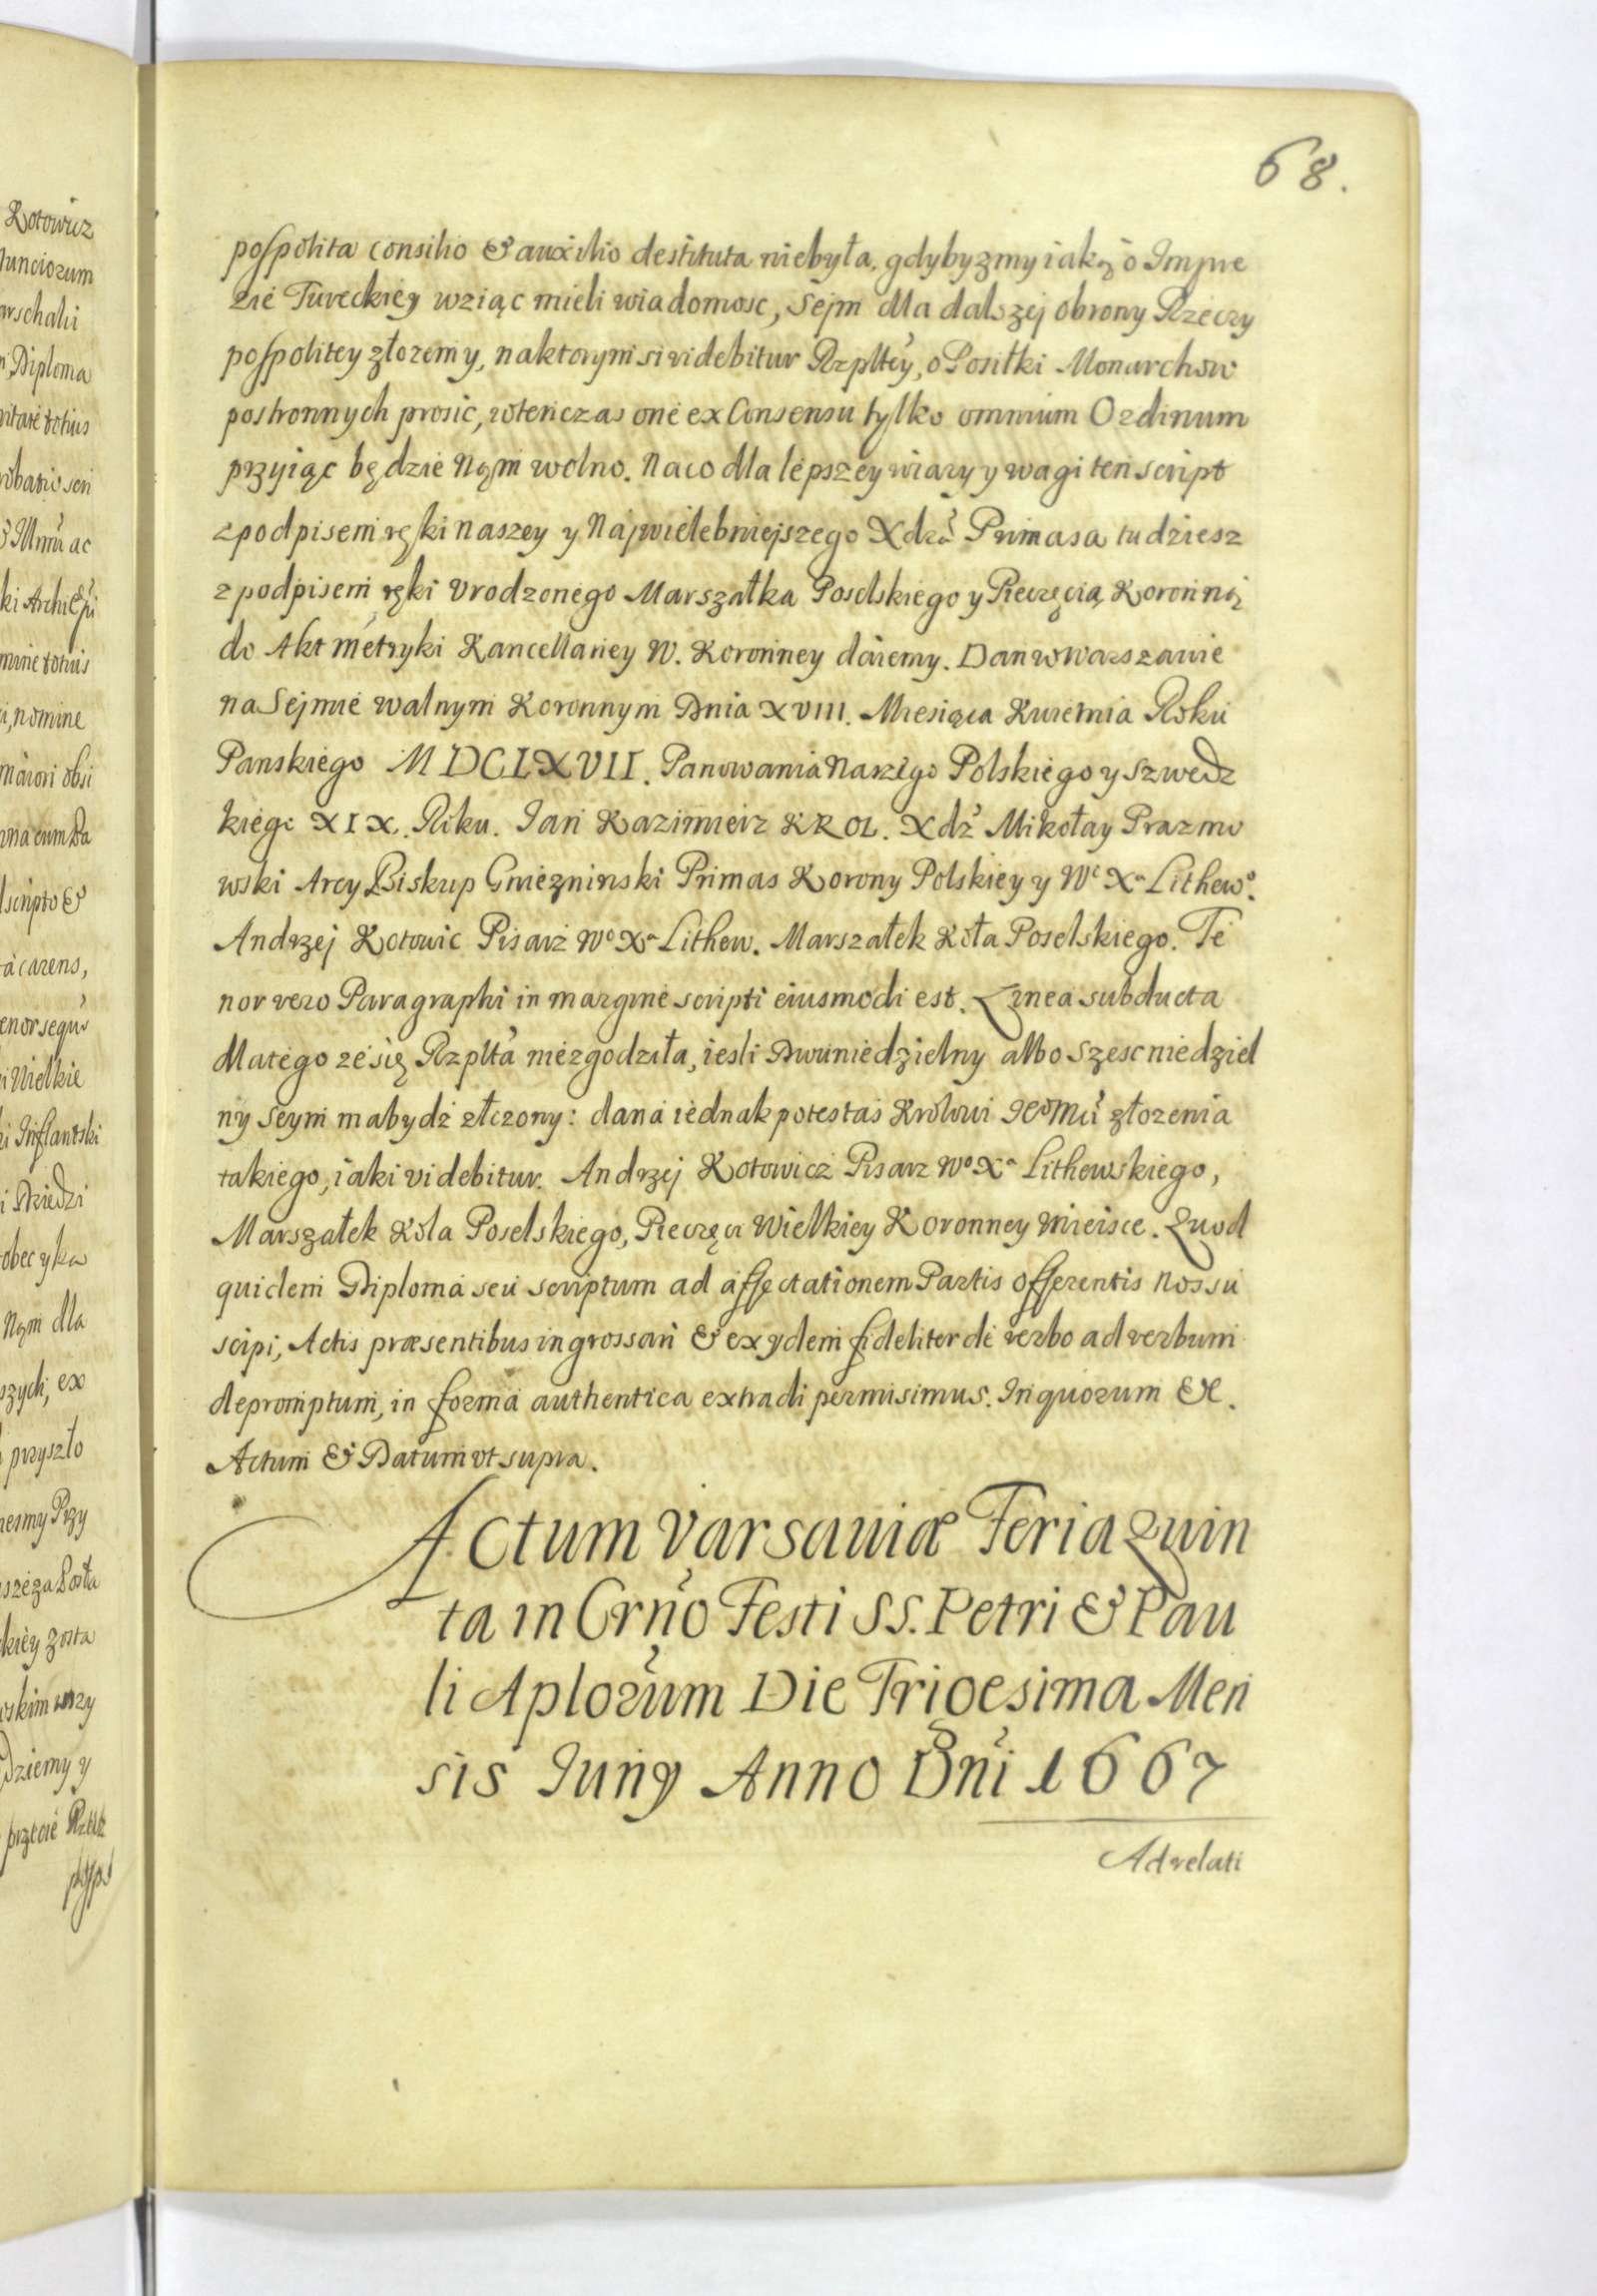 68.
pospolita consilio & auxilio destituta niebyła, gdybyzmy iaką o Impre
zie Tureckiey wziąc mieli wiadomosc, Sejm dla dalszej obrony Rzeczy
pospolitey złozemy, naktorym si videbitur Rzpltey, o Posiłki Monarchow
postronnych prosic, wtenczas one ex Consensu tylko omnium Ordinum
przyiąc będzie Nąm wolno. Naco dla lepszey wiary y wagi ten script
z podpisem ręki naszey y Najwielebniejszego Xdza Primasa tudziesz
z podpisem ręki Urodzonego Marszałka Poselskiego y Pieczęcią Koronną
do Akt metryki Kancellariey W. Koronney daiemy. Dan w Warszawie
na Sejmie walnym Koronnym Dnia XVIII. Miesiąca Kwietnia Roku
Panskiego MDCLXVII. Panowania Naszego Polskiego y Szwedz
kiego XIX. Roku. Jan Kazimierz KROL. Xdz Mikołay Prazmo
wski Arcy Biskup Gniezninski Primas Korony Polskiey y Wo Xa Lithewo.
Andrzej Kotowic Pisarz Wo Xa Lithew. Marszałek Koła Poselskiego. Te
nor vero Paragraphi in margine scripti eiusmodi est. Linea subducta
dlatego ze się Rzplta niezgodziła, iesli Dwuniedzielny albo szescniedziel
ny Seym ma bydz złozony: dana iednak potestas Krolowi Jeomu złozenia
takiego, iaki videbitur. Andrzej Kotowicz Pisarz Wo Xa Lithewskiego,
Marszałek Kola Poselskiego, Pieczęci Wielkiey Koronney Mieisce. Quod
quidem Diploma seu scriptum ad affectationem Partis offerentis Nos su
scipi, Actis præsentibus ingrossari & ex ydem fideliter de verbo ad verbum
depromptum, in forma authentica extradi permisimus. In quorum &c.
Actum & Datum ut supra.
Actum Varsaviæ Feria Quin
ta in Crño Festi SS. Petri & Pau
li Aplorum Die Trigesima Men
sis Juny Anno Dni 1667
Ad relati
Kotowicz
Nunciorum
arschalii
Diploma
totius
ac
nomine
scripto &
carens,
Wielkie
Inflantski
Dziedzi
Nąm dla
szych, ex
przyszło
dziemy y